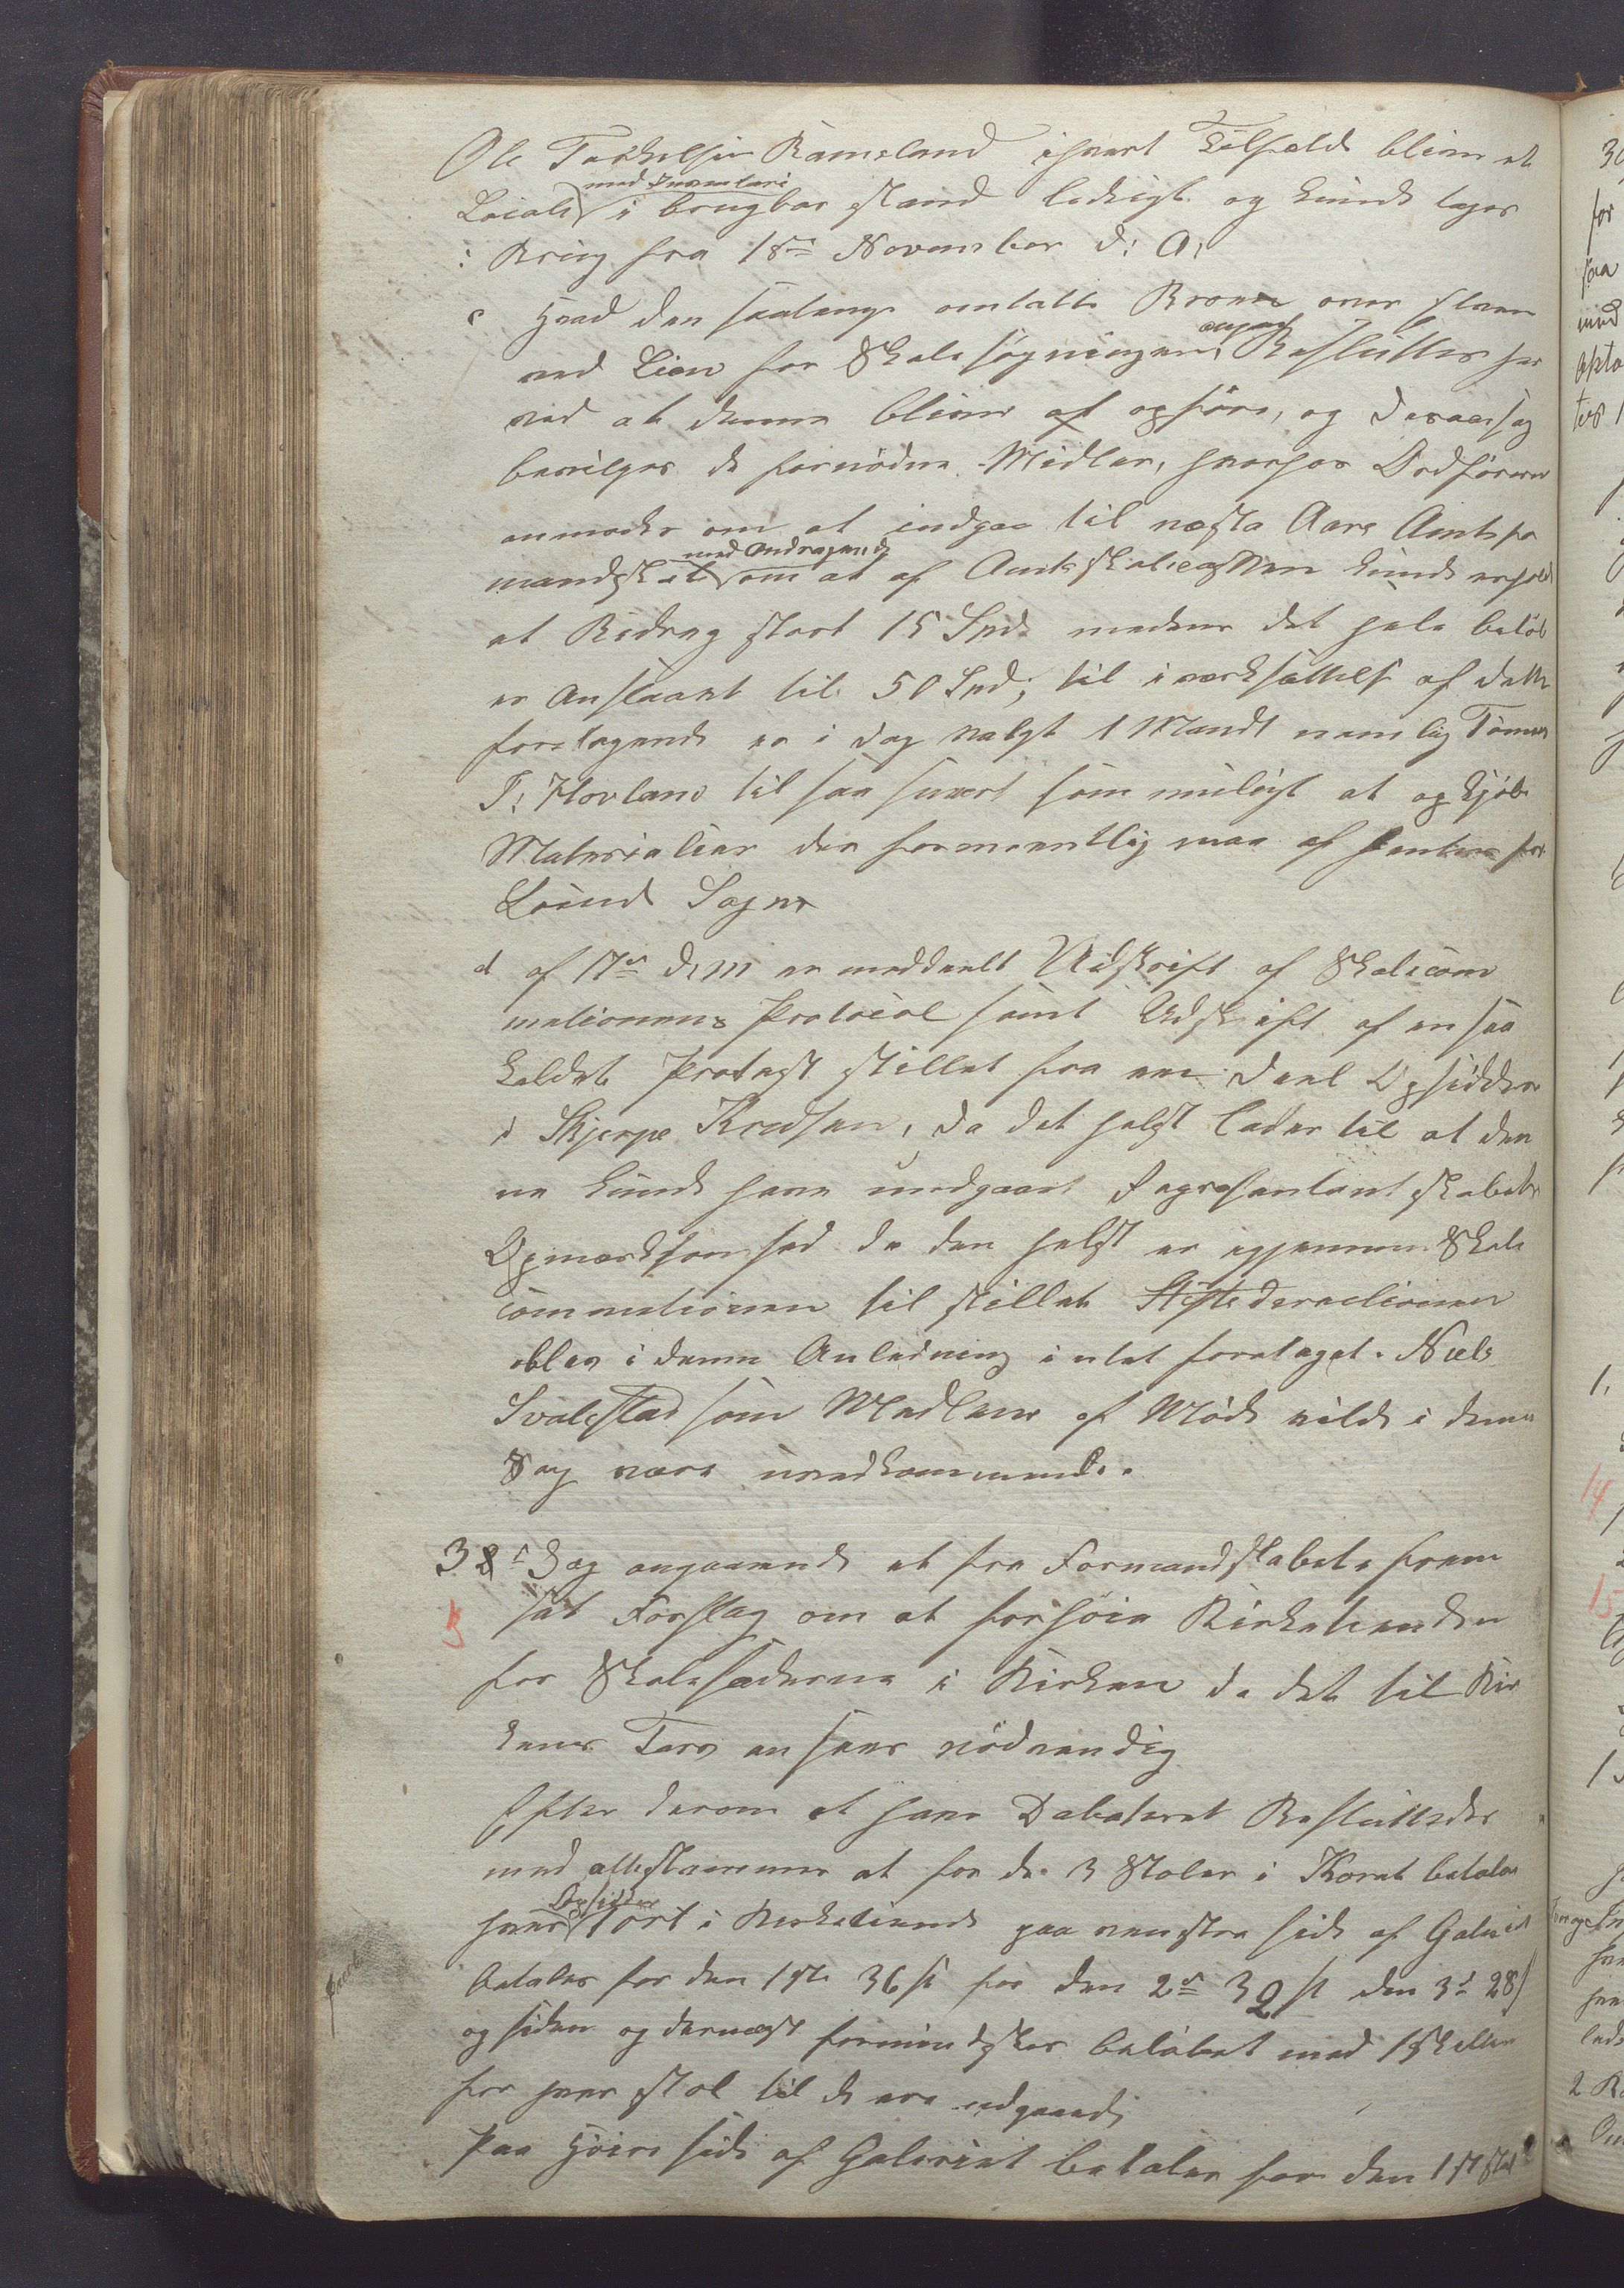 Ole Tørkelsen Rameland ihvert Tilfælde bliver et
Locale med Inventari i brugbar stand ledeigt og kunde tages
i Brug fra 18de November d: A:
c Hvad den saalenge omtalte Broe over Elven
ved Lien for Skolesøgningen angaar, Besluttes her
ved at denne bliver at opføre, og desaarsag
bevilges de fornødne Midler, hvorhos Ordføreren
anmodes om at indgaae til næste Aars Amtsfor
mandskab med Andragende om at af Amtsskolecassen kunde erholde
et Bidrag stort 15 Spd. medens det hele beløb
er Anslaaet til 50 Spd; til iværksættelse af dette
foretagende er i dag valgt 1 Mand nemlig Tönnes
T: Hovland til saa snart som muligt at opkjøbe
Materialier der formeentlig maa afhentes fra
Lunds Sogn
d af 17de d: M er meddeelt Udskrift af Skolecom
missionens Protocol samt Udskrift af en saa
kaldet Protest stillet fra en deel Opsiddere
i Skjerpe Kredsen, da det helst lader til at den
ne kunde have undgaaet Repræsentantskabets
Opmærksomhed da den helst er igjennem Skole
commissionen tilstillet Stiftsdirectionen
blev i denne Anledning intet foretaget. Niels
Svalestad som Medlem af Møde vilde i denne
Sag være uvedkommende.
3 Sag angaaende et fra Formandskabets frem
3 sat Forslag om at forhøie Kirketienden
for Stolestæderne i Kirken da det til Kir
kens Tarv ansees nødvendig
Efter derom at have Debateret Besluttedes
med allestemmer at for de 3 Stoler i Koret betaler
hver Opsidder 1 ort i Kirketiende paa venstre side af Galeriet
betales for den 1ste 36 s for den 2de 32 s den 3d 28 s
og siden og dernæst formindskes beløbet med 1 Skilling
for hver stol til de ere udgaaede
Paa Høire side af Galeriet betales for den 1ste stol